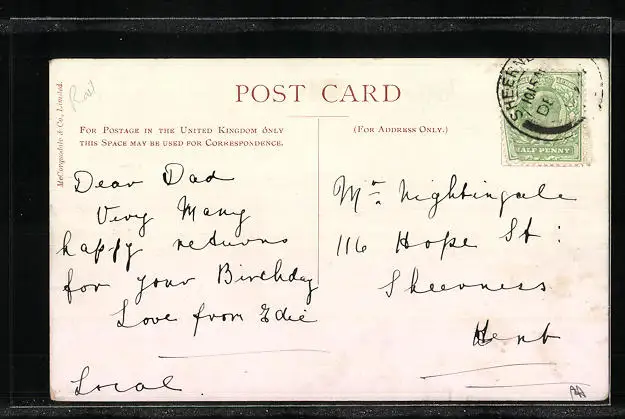 POST CARD
McCorquodale & Co., Limited.
FOR POSTAGE IN THE UNITED KINGDOM ONLY
THIS SPACE MAY BE USED FOR CORRESPONDENCE.
(FOR ADDRESS ONLY.)
HALF PENNY
Dear Dad
Very Many
happy returns
for your Birthday
Love from Edie
Local.
Mr Nightingale
116 Hope St:
Sheerness
Kent